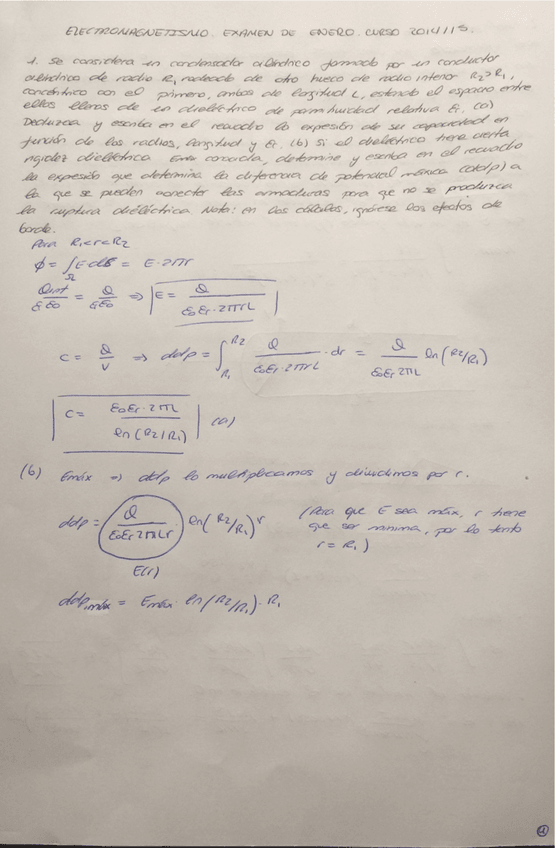 ELECTROMAGNETISMO. EXAMEN DE ENERO. CURSO 2014/15.
1. Se considera un condensador cilíndrico formado por un conductor
cilíndrico de radio R₁ rodeado de otro hueco de radio interior R₂>R₁,
concéntrico con el primero, ambos de longitud L, estando el espacio entre
ellos llenos de un dieléctrico de permitividad relativa Er. (a)
Deduzca y escriba en el recuadro la expresión de su capacidad en
función de los radios, longitud y Er. (b) Si el dieléctrico tiene cierta
rigidez dieléctrica Emáx conocida, determine y escriba en el recuadro
la expresión que determina la diferencia de potencial máxima (ddp) a
la que se pueden conectar las armaduras para que no se produzca
la ruptura dieléctrica. Nota: en los cálculos, ignórese los efectos de
borde.
Para R₁<r<R₂
ϕ = ∫ E ds = E·2πr
Qint/ErE0 = Q/ErE0 ⇒ E = Q/E0Er·2πrL
C = Q/V ⇒ ddp = ∫R₁R2 Q/E0Er·2πrL ·dr = Q/E0Er2πL ln(R2/R₁)
C = E0Er·2πL/ln(R2/R₁) (a)
(b) Emáx ⇒ ddp lo multiplicamos y dividimos por r.
ddp = Q/E0Er2πLr · ln(R2/R₁) r (Para que E sea máx, r tiene
que ser mínima, por lo tanto
r = R₁)
E(r)
ddpmáx = Emáx · ln(R2/R₁) · R₁
1